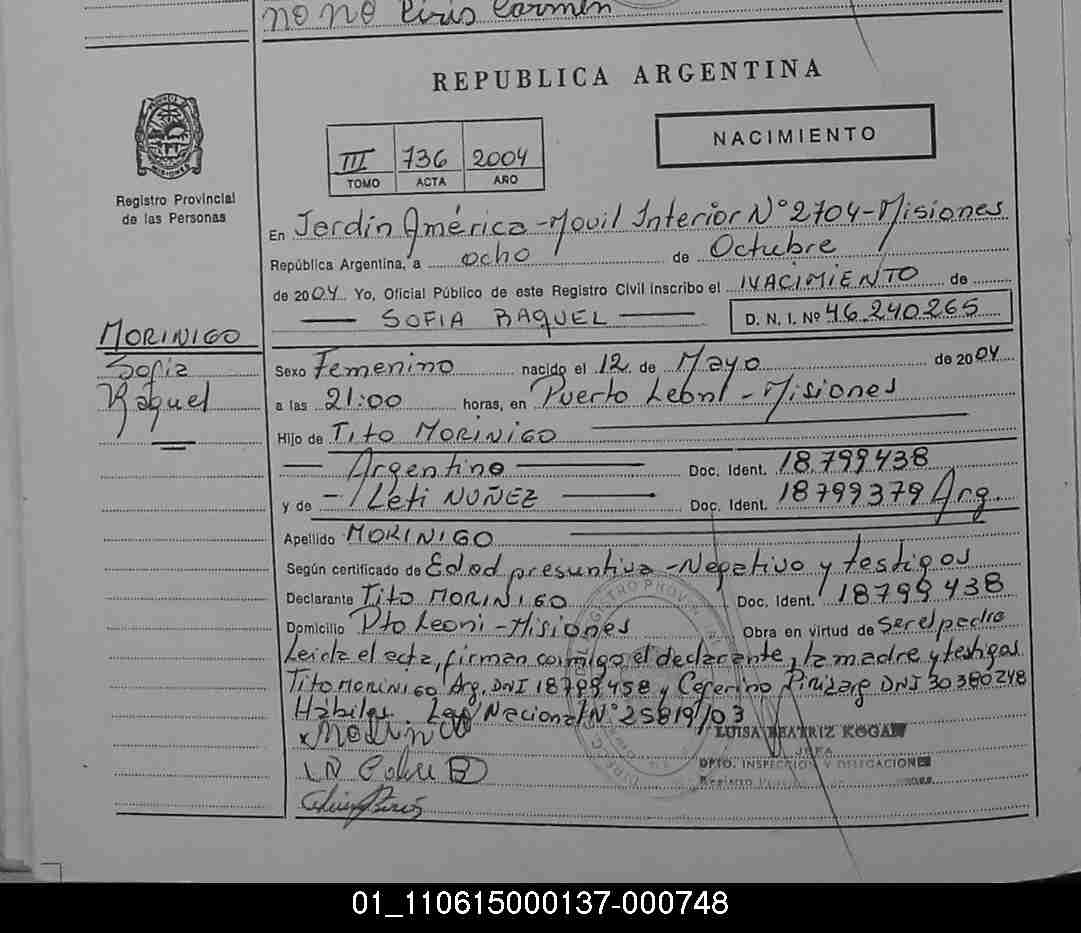 no no Piris Carmen
REPUBLICA ARGENTINA
NACIMIENTO
III 736 2004
TOMO ACTA AÑO
Registro Provincial
de las Personas
En Jardín América - Movil Interior N° 2704 - Misiones
República Argentina, a ocho de Octubre
de 2004 Yo, Oficial Público de este Registro Civil inscribo el NACIMIENTO de
SOFIA RAQUEL D. N. I. Nº 46.240265
MORINIGO
Sofia
Raquel
Sexo Femenino nacido el 12 de Mayo de 2004
a las 21:00 horas, en Puerto Leoni - Misiones
Hijo de TITO MORINIGO
Argentino Doc. Ident. 18.799438
y de Leti NUÑEZ Doc. Ident. 18799379 Arg.
Apellido MORINIGO
Según certificado de Edad presuntiva - Negativo y testigos
Declarante Tito MORINIGO Doc. Ident. 18799438
Domicilio Pto Leoni - Misiones Obra en virtud de Ser el padre
Leida el acta, firman conmigo el declarante, la madre y testigos
Tito MORINIGO Arg. DNI 18799458 y Ceferino DNI 30380248
Habiles. Ley Nacional N° 25819/03
LUISA BEATRIZ KOGAN
JEFA
DPTO. INSPECCION Y DELEGACIONES
01_110615000137-000748